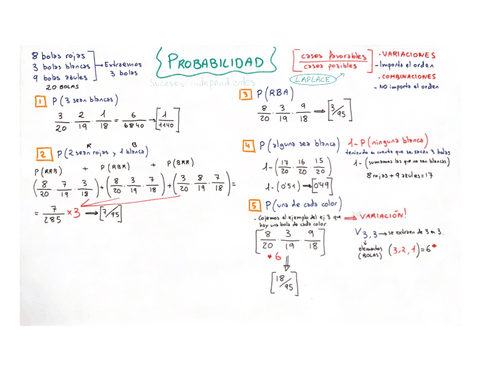 8 bolas rojas
3 bolas blancas
9 bolas azules
20 BOLAS
→ Extraemos 3 bolas
PROBABILIDAD
casos favorables
casos posibles
LAPLACE
- VARIACIONES
- Importa el orden
- COMBINACIONES
- NO importa el orden
1 P(3 sean blancas)
3/20 · 2/19 · 1/18 = 6/6840 → [1/1140]
2 P(2 sean rojas y 1 blanca)
R B
P(RRB) + P(RBR) + P(BRR)
(8/20 · 7/19 · 3/18) + (8/20 · 3/19 · 7/18) + (3/20 · 8/19 · 7/18) =
= 7/285 × 3 → [7/95]
3 P(RBA)
8/20 · 3/19 · 9/18 → [3/95]
4 P(alguna sea blanca)
1 - P(ninguna blanca)
1 - (17/20 · 16/19 · 15/18)
1 - (0'51) → [0'49]
teniendo en cuenta que se sacan 3 bolas
1 - (sumamos las que no sean blancas)
8 rojas + 9 azules = 17
5 P(una de cada color)
- Cojemos el ejemplo del ej. 3 que hay una bola de cada color
→ VARIACIÓN!
[8/20 · 3/19 · 9/18]
* 6
[18/95]
V 3,3 → se extraen de 3 en 3.
elementos (BOLAS)
(3,2,1) = 6*